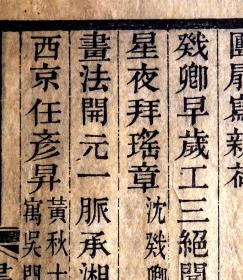 團扇寫新荷
卿早歲工三絕聞
星夜拜瑤章 沈
卿
畫法開元一脈承湘
西京任彥昇 黃秋士
寓吳門